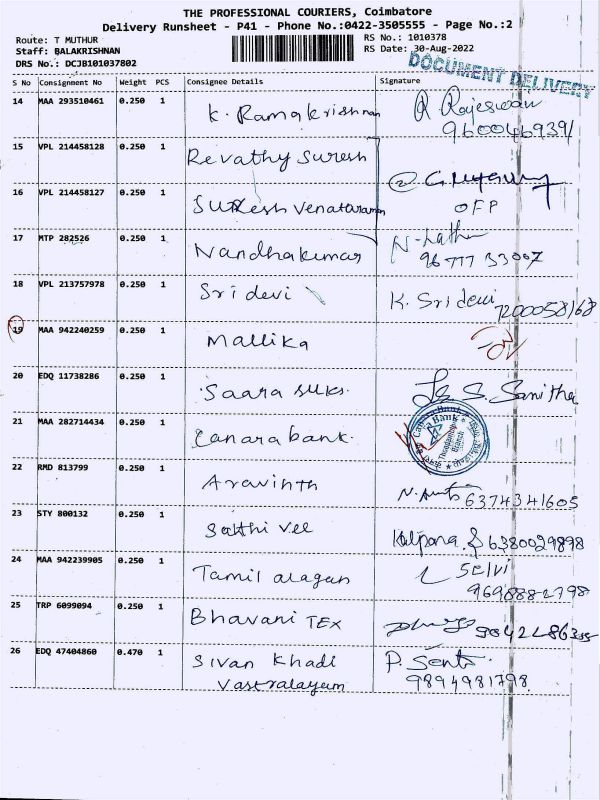 THE PROFESSIONAL COURIERS, Coimbatore
Delivery Runsheet - P41 - Phone No.:0422-3505555 - Page No.:2
Route: T MUTHUR RS No.: 1010378
Staff: BALAKRISHNAN RS Date: 30-Aug-2022
DRS No.: DCJB101037802
DOCUMENT DELIVERY
S No Consignment No Weight PCS Consignee Details Signature
14 MAA 293510461 0.250 1 K. Ramakrishnan R Rajeswari
9600469391
15 VPL 214458128 0.250 1 Revathy Suresh
16 VPL 214458127 0.250 1 Suresh Venataraman
OFP
17 MTP 282526 0.250 1 Nandhakumar N-Latha
96777 33007
18 VPL 213757978 0.250 1 Sri devi K. Sri devi
7200058168
19 MAA 942240259 0.250 1 Mallika
20 EDQ 11738286 0.250 1 Saara suks. S. Sanitha
21 MAA 282714434 0.250 1 Canara bank. Canara Bank
22 RMD 813799 0.250 1 Aravinth 6374341605
23 STY 800132 0.250 1 Sakthi vel Kalpana. S 6380029898
24 MAA 942239905 0.250 1 Tamil alagan Selvi
9698882798
25 TRP 6099094 0.250 1 Bhavani TEX
26 EDQ 47404860 0.470 1 Sivan Khadi P. Senthi
Vastralayam 9894981798.